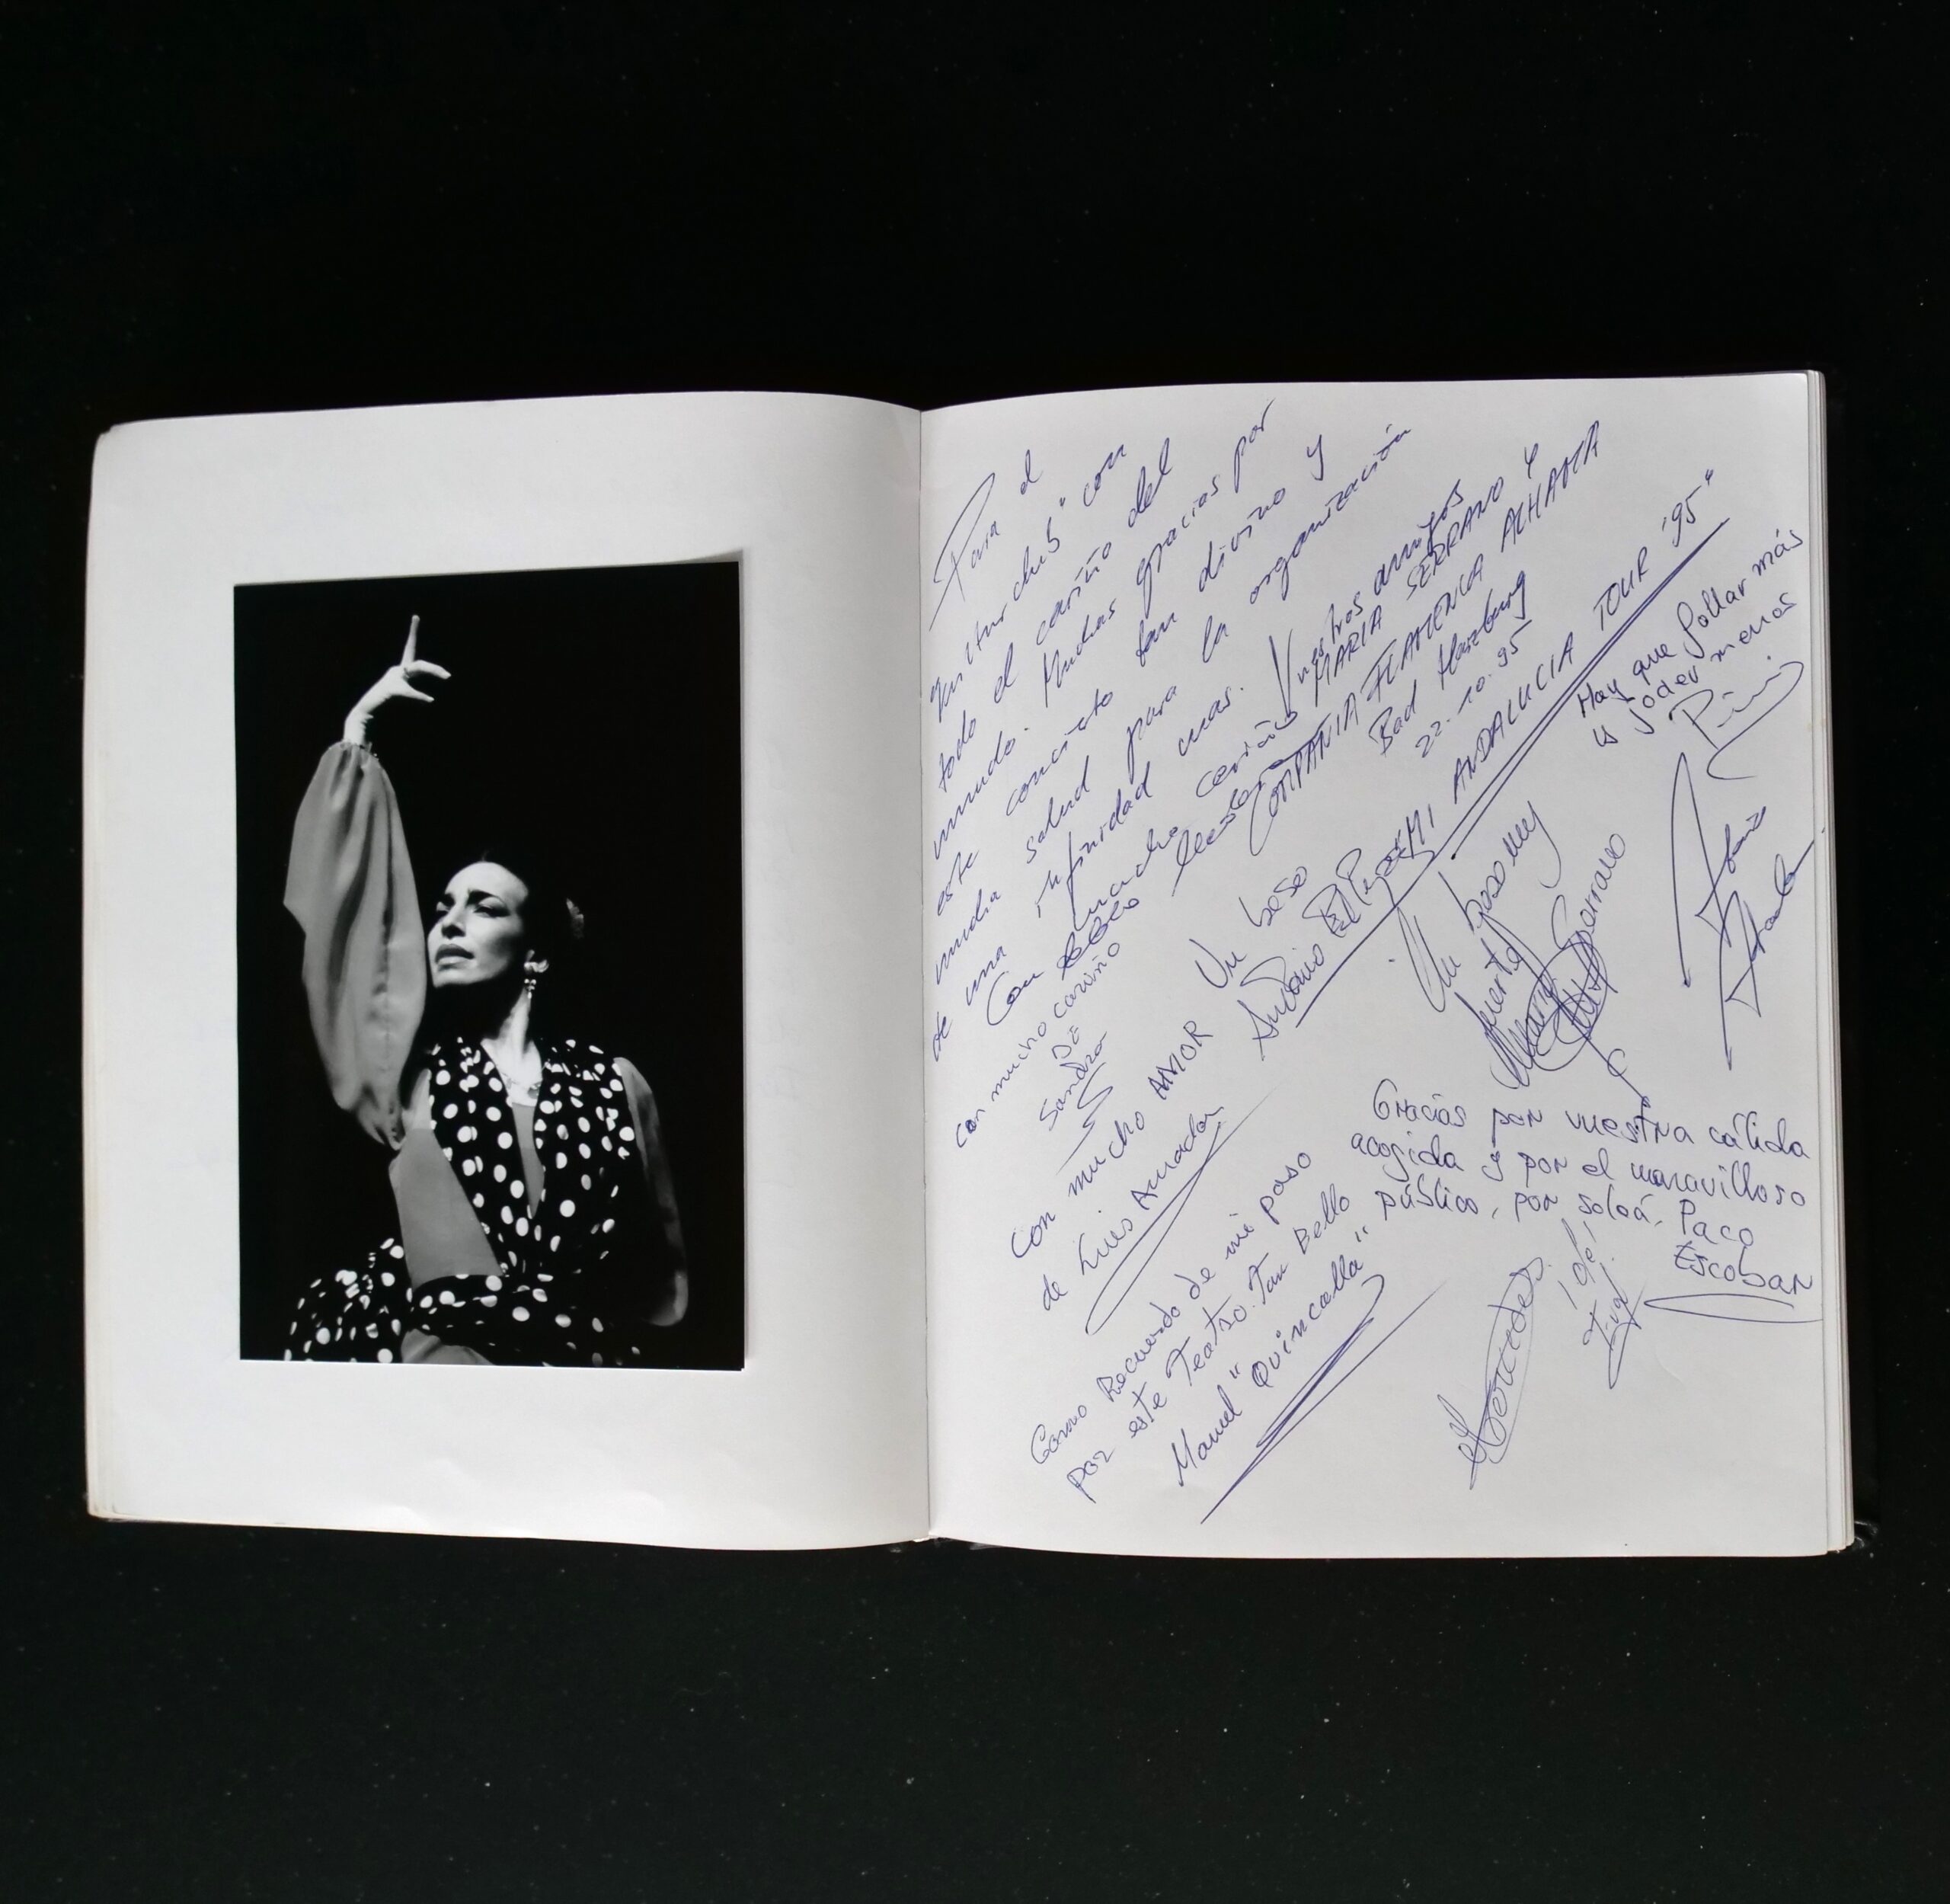 Para el
"Kulturclub" con
todo el cariño del
mundo. Muchas gracias por
este concierto tan divino y
mucha salud para la organización
de una infinidad mas.
Con mucho cariño
Vuestros amigos
MARIA SERRANO Y
COMPAÑIA FLAMENCA ALHAMA
Bad Harzburg
22.10.95
MI ANDALUCIA TOUR '95"
Hay que follar más
y joder menos
con mucho cariño
DE
Sandra
Un beso
Antonio
Un beso muy
fuerte
Maria Serrano
con mucho AMOR
de Luis Amador
Gracias por vuestra cálida
acogida y por el maravilloso
público, por soleá. Paco
Escobar
Como Recuerdo de mi paso
por este Teatro Tan Bello
Manuel "Quincalla"